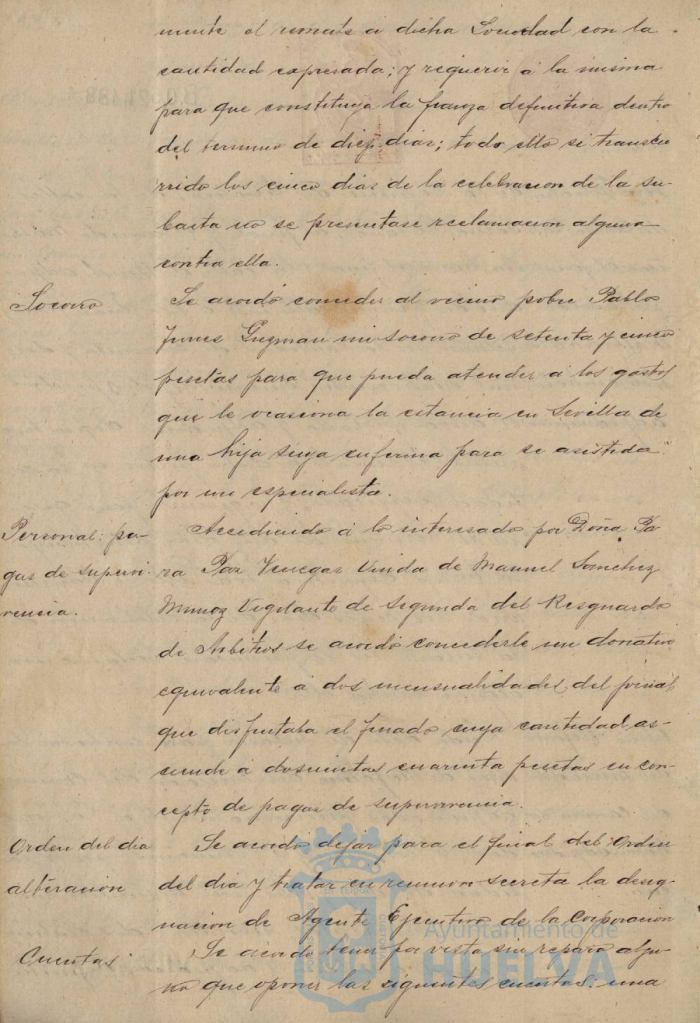 mente el remate a dicha Sociedad con la
cantidad expresada; y requerir á la misma
para que constituya la fianza definitiva dentro
del termino de diez dias; todo ello si transcu
rrido los cinco dias de la celebracion de la su-
basta no se presentase reclamacion alguna
contra ella.
Socorro
Se acordó conceder al vecino pobre Pablo
Guzman un socorro de setenta y cinco
pesetas para que pueda atender a los gastos
que le ocasiona la estancia en Sevilla de
una hija suya enferma para se asistida
por un especialista.
Personal: pa-
gas de supervi-
vencia.
Accediendo á lo interesado por Doña
Paz Venegas Viuda de Manuel Sanchez
Munoz Vigilante de segunda del Resguardo
de Arbitros se acordó concederle un donativo
equivalente á dos mensualidades del jornal
que disfrutaba el finado cuya cantidad as-
ciende a doscientas cuarenta pesetas en con-
cepto de pagas de supervivencia.
Orden del dia
alteración
Se acordó dejar para el final del Orden
del dia y tratar en reunion secreta la desig-
nacion de Agente Ejecutivo de la Corporacion
Cuentas
Se acordó tener por vista sin reparo algu-
no que oponer las siguientes cuentas: una
Ayuntamiento de
HUELVA